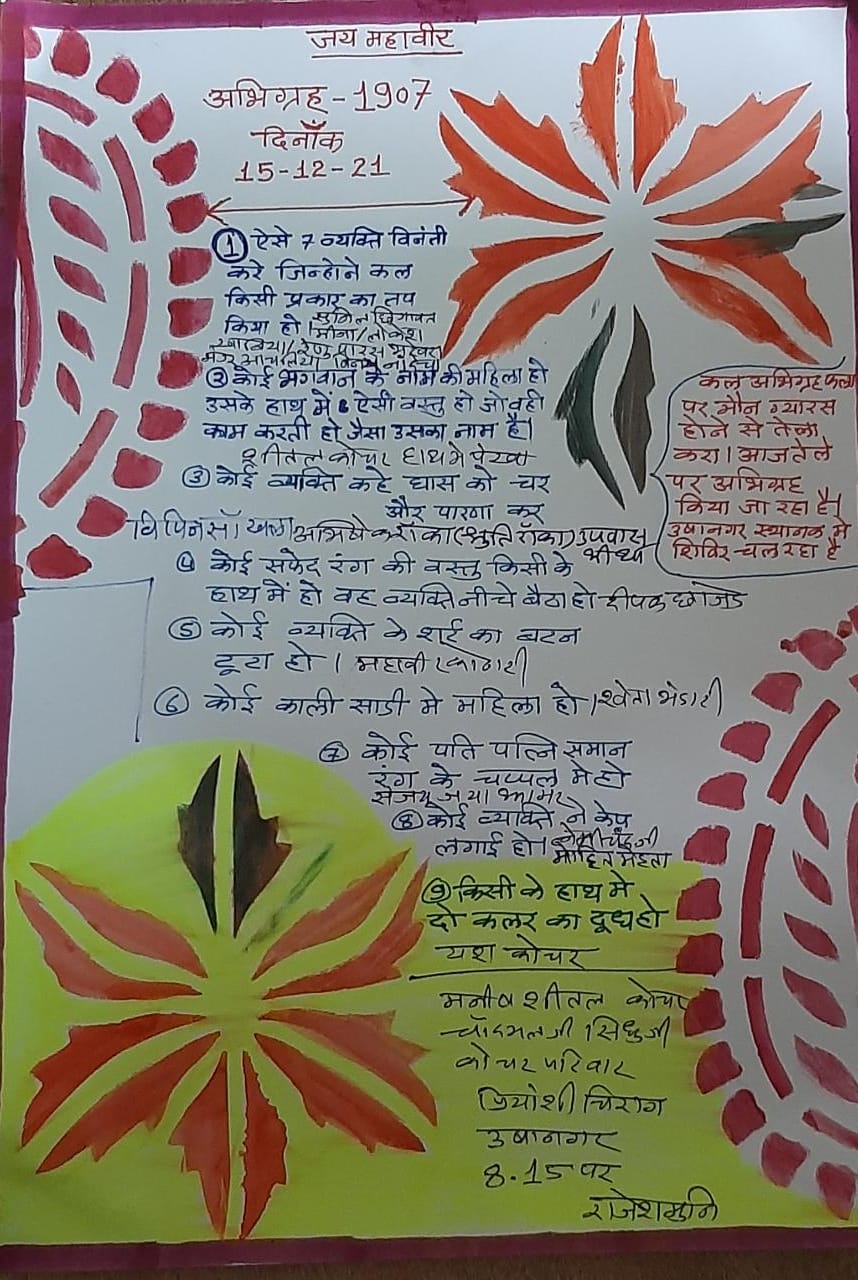 जय महावीर
अभिग्रह - 1907
दिनाँक
15-12-21
① ऐसे 7 व्यक्ति विनंती
करे जिन्होने कल
किसी प्रकार का तप
किया हो।
मीना/लोकेश
② कोई भगवान के नाम की महिला हो
उसके हाथ में ऐसी वस्तु हो जो वही
काम करती हो जैसा उसका नाम है।
शीतल कोचर हाथ मे पंखा
③ कोई व्यक्ति कहे घास को चर
और पारणा कर
विपिन साँखला अभिषेक राँका (श्रुति राँका) उपवास
भी था
④ कोई सफेद रंग की वस्तु किसी के
हाथ में हो वह व्यक्ति नीचे बैठा हो दीपक छाजेड
⑤ कोई व्यक्ति के शर्ट का बटन
टूटा हो। महावीर
⑥ कोई काली साडी मे महिला हो। श्वेता भंडारी
⑦ कोई पति पत्नि समान
रंग के चप्पल मे हो
संजय जया झामर
⑧ कोई व्यक्ति ने केप
लगाई हो।
मोहित मेहता
⑨ किसी के हाथ मे
दो कलर का दूध हो
यश कोचर
मनीष शीतल कोचर
चाँदमलजी सिधुजी
कोचर परिवार
प्रियांशी चिराग
उषानगर
8.15 पर
राजेशमुनि
कल अभिग्रह फला
पर मौन ग्यारस
होने से तेला
करा। आज तेले
पर अभिग्रह
किया जा रहा है।
उषानगर स्थानक मे
शिविर चल रहा है